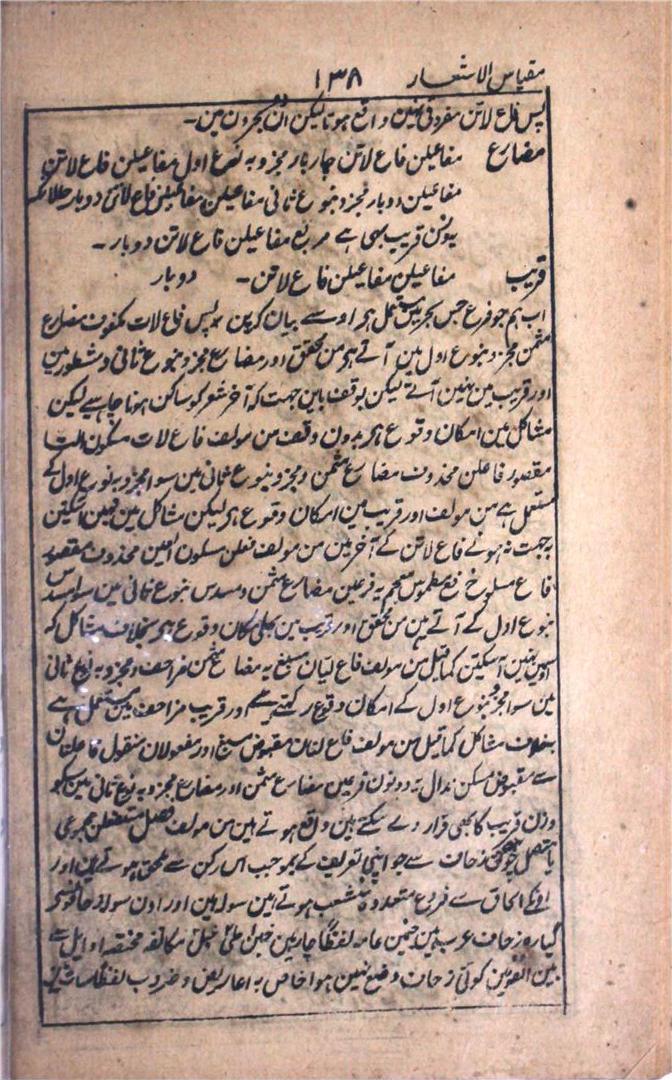 مقیاس الاشعار ۱۳۸
پس فاع لاتن مفروقی نہین واقع ہوتا لیکن ان بحرون مین۔
مضارع مفاعیلن فاع لاتن چار بار مجزو بہ نوع اول مفاعیلن فاع لاتن
مفاعیلن دو بار مجزو بنوع ثانی مفاعیلن مفاعیلن فاع لاتن دو بار حالانکہ
یہ وزن قریب بھی ہے مربع مفاعیلن فاع لاتن دو بار۔
قریب مفاعیلن مفاعیلن فاع لاتن۔ دو بار
اب ہم جو فرع جس بحر مین مستعمل ہی اوسے بیان کرین پس فاع لات مکفوف مضارع
مثمن مجزو بنوع اول مین آتے ہی من محقق اور مضارع مجزو بنوع ثانی و مشطور مین
اور قریب مین نہین آتے لیکن بوقف باین جہت کہ آخر شعر کو ساکن ہونا چاہیے لیکن
مشاکل مین امکان وقوع ہی بدون وقف من مولف فاع لات مسکون التا
مقصور فاعلن محذوف مضارع مثمن و مجزو بنوع ثانی مین سوا مجزو بہ نوع اول کے
مستعمل ہے من مولف اور قریب مین امکان وقوع ہی لیکن مشاکل مین نہین آسکتین
بہ جہت نہ ہونے فاع لاتن کے آخر مین من مولف فعلن مسکون العین محذوف مقصور
فاع مسلوخ فع مطموس معجم یہ فرعین مضارع مثمن و مسدس بنوع ثانی مین سوا مسدس
بنوع اول کے آتے ہین من محقق اور قریب مین بھی امکان وقوع ہی بخلاف مشاکل کہ
اوسمین نہین آسکتین کما قبل من مولف فاع لیان مسبغ یہ مضارع مثمن مزاحف و مجزو بہ نوع ثانی
مین سوا مجزو بنوع اول کے امکان وقوع رکھتے ہے اور قریب مزاحف مین مستعمل ہے
بخلاف مشاکل کما قبل من مولف فاع لتان مقبوض مسبغ اور مفعولان منقول فاعلتان
سے مقبوض مسکن مذال یہ دونون فرعین مضارع مثمن اور مضارع مجزو بہ نوع ثانی مین جسکو
وزن قریب کا بھی قرار دے سکتے ہین واقع ہوتے ہین من مولف فصل مستفعلن مجموعی
یا متصل جو جو زحاف سے جو اپنی تعریف کے بموجب اس رکن سے ملحق ہوتے ہین اور
اونکے الحاق سے فروع متعددہ منشعب ہوتے ہین سولہ ہین اور اون سولہ زحافون مین
گیارہ زحاف عرب ہین جنمین عامہ لفظاً چار ہین خبن طی خبل مکانفہ مختصہ اوایل سے
بین الفریقین کوئی زحاف وضع نہین ہوا خاص بہ اعاریض و ضروب لفظاً سات ہین